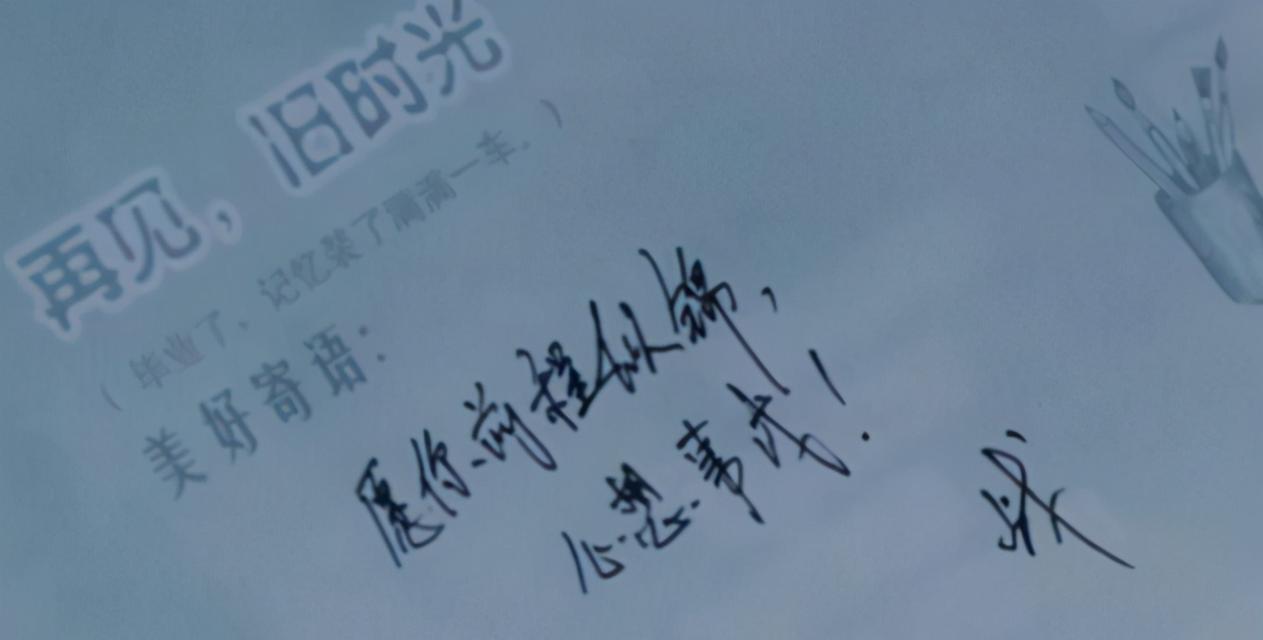 再见，旧时光
（毕业了，记忆装了满满一车。）
美好寄语：
愿你前程似锦，
心想事成！